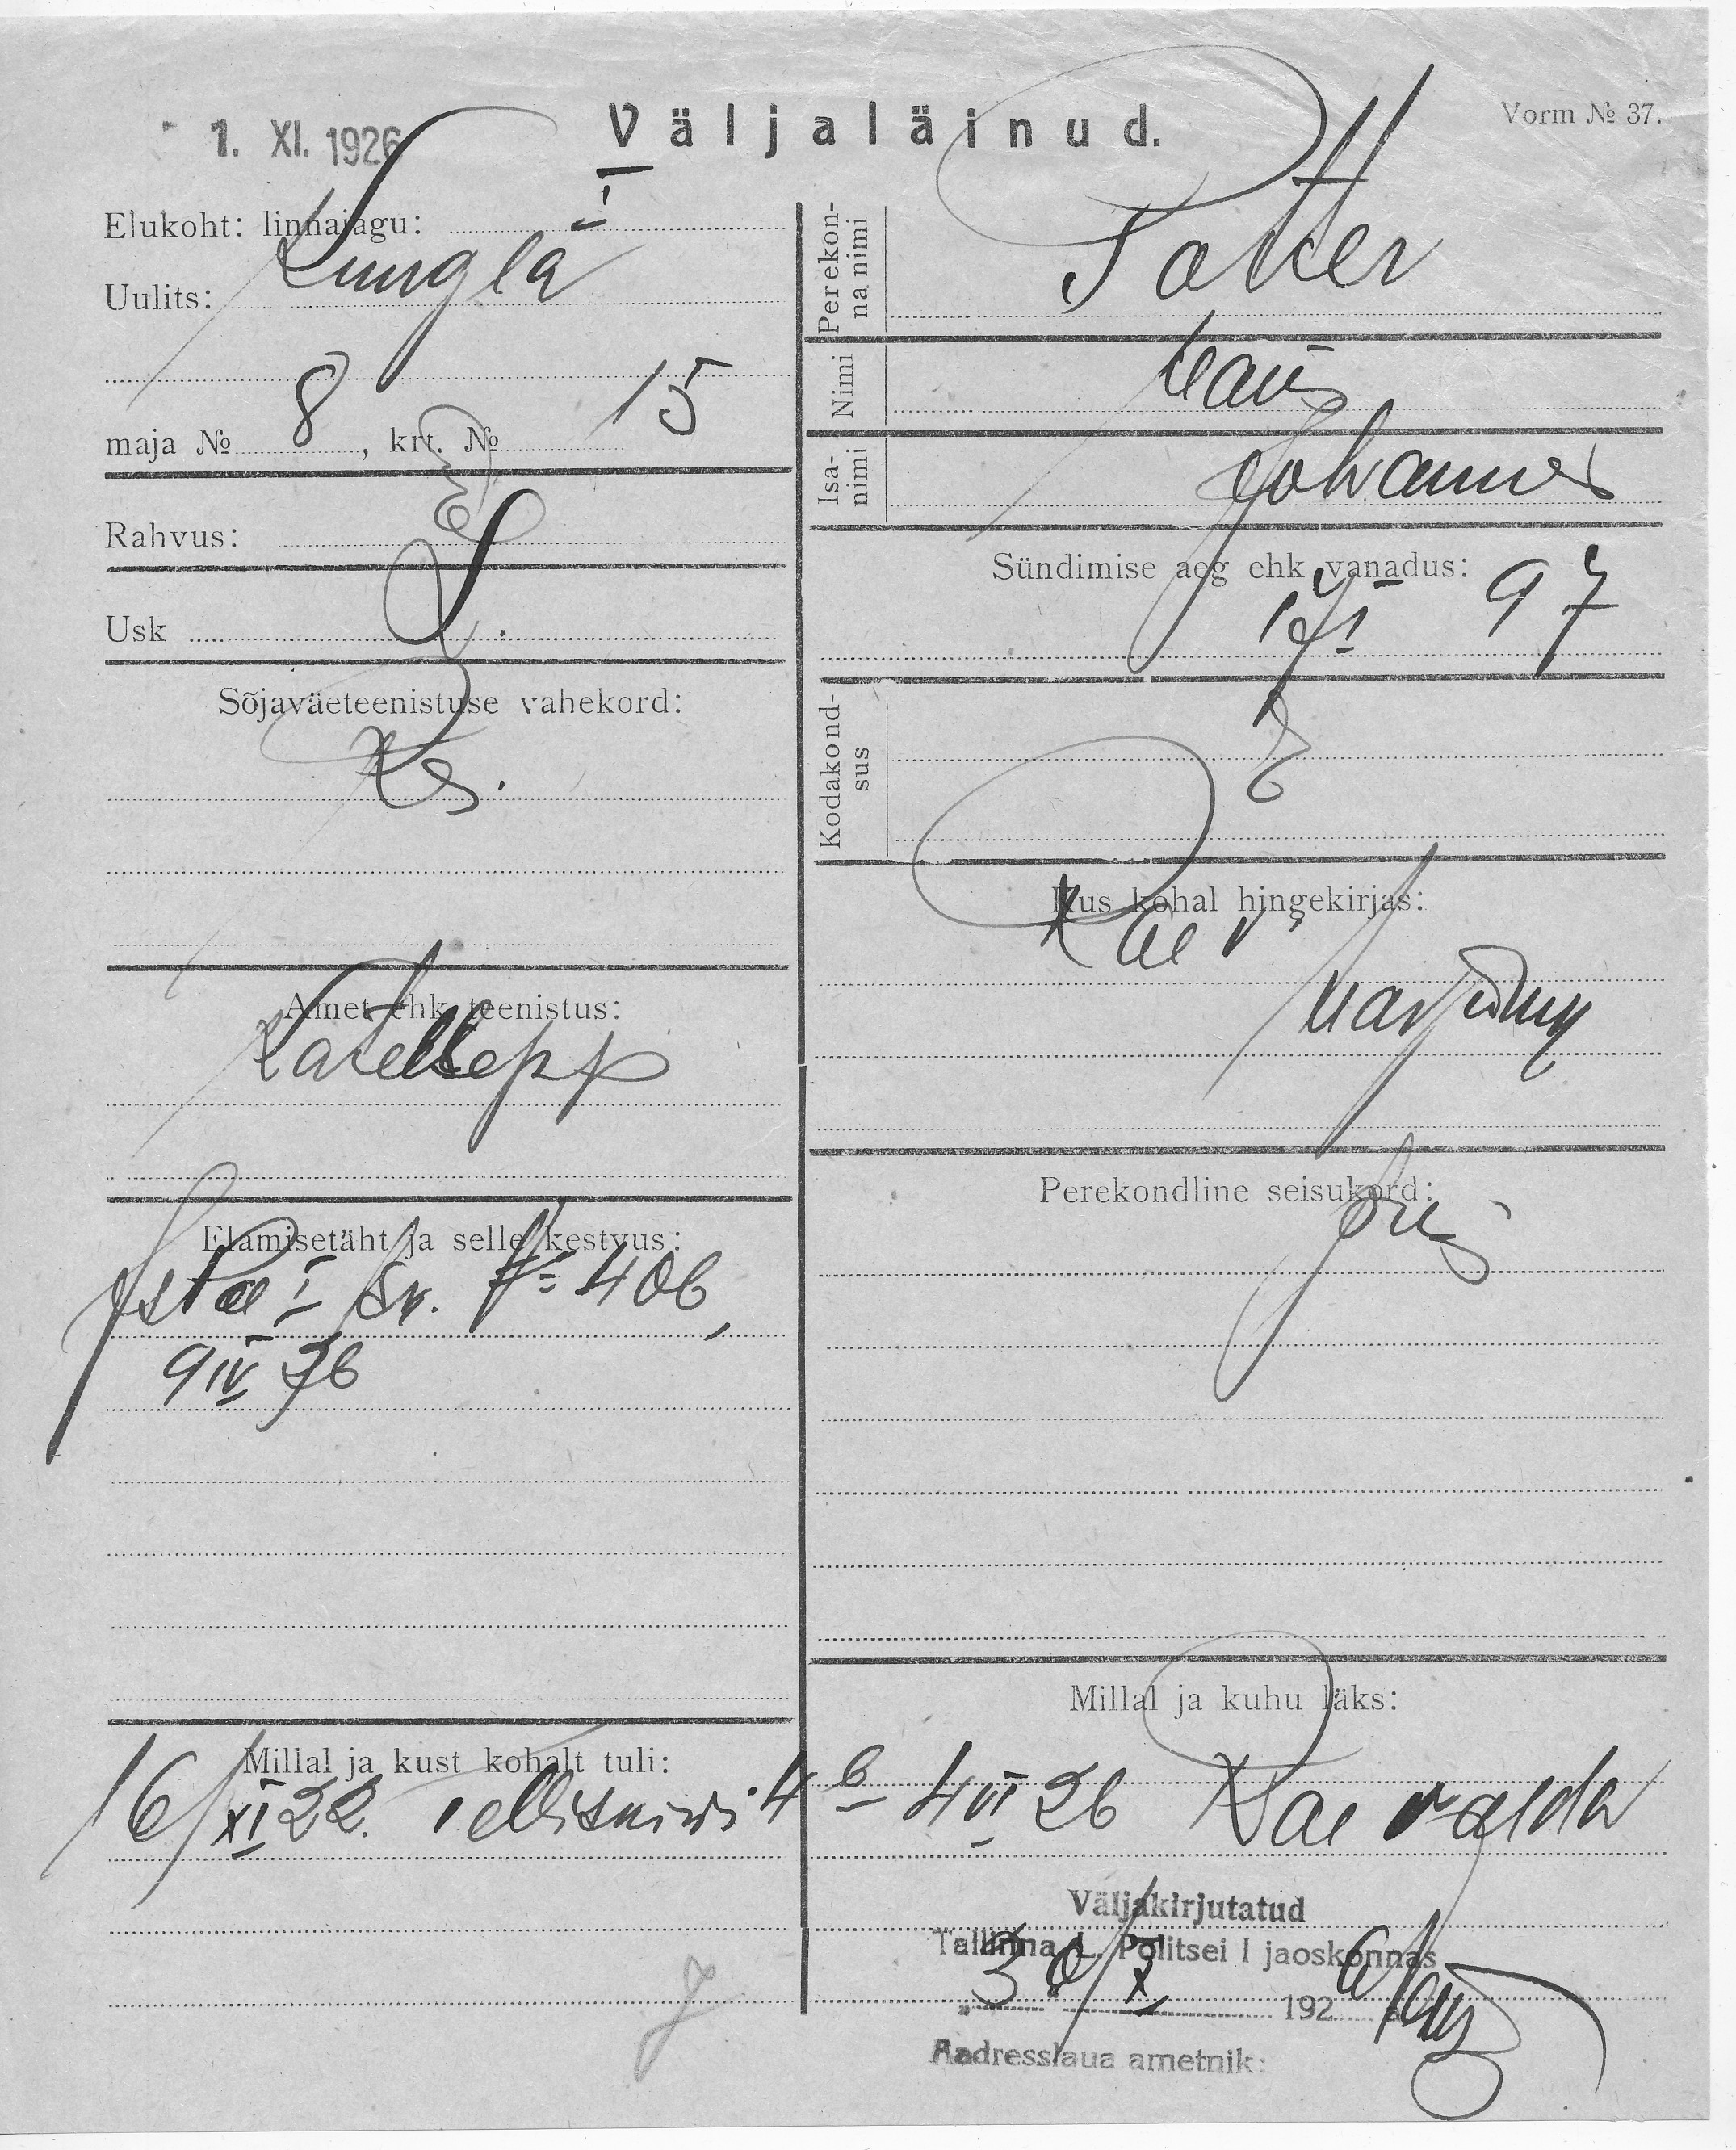 1. XI. 1926
Väljaläinud.
Vorm № 37.
Elukoht: linnajagu: I
Uulits: Kungla
maja № 8, krt. № 15
Rahvus:
Usk
Sõjaväeteenistuse vahekord:
Amet ehk teenistus:
Katelsepp
Elamisetäht ja selle kestvus:
I № 406,
9 IV 26
Millal ja kust kohalt tuli:
16/XI 22. Telliskivi 4
Perekonna nimi
Potter
Nimi
Isanimi
Johannes
Sündimise aeg ehk vanadus:
97
Kodakondsus
Kus kohal hingekirjas:
Rae v.
Harjumm
Perekondline seisukord:
Millal ja kuhu läks:
4 VI 26 Rae valda
Väljakirjutatud
Tallinna L. Politsei I jaoskonnas
„30/X 1926 a
Aadresslaua ametnik: